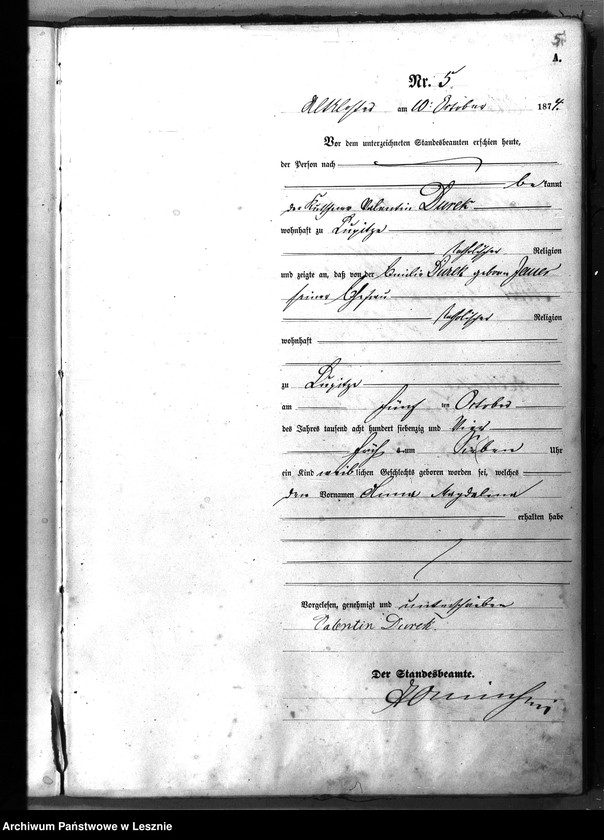 5.
A.
Nr. 5
Altkloster am 10. October 1874.
Vor dem unterzeichneten Standesbeamten erschien heute,
der Person nach
bekannt
der Kutscher Valentin Durek
wohnhaft zu Lupitze
katholischer Religion
und zeigte an, daß von der Emilie Durek geboren
seiner Ehefrau
katholischer Religion
wohnhaft
zu Lupitze
am fünf ten October
des Jahres tausend acht hundert siebenzig und Vier
früh um Sieben Uhr
ein Kind weiblichen Geschlechts geboren worden sei, welches
den Vornamen Anna Magdalena
erhalten habe
Vorgelesen, genehmigt und unterschrieben
Valentin Durek
Der Standesbeamte.
Archiwum Państwowe w Lesznie